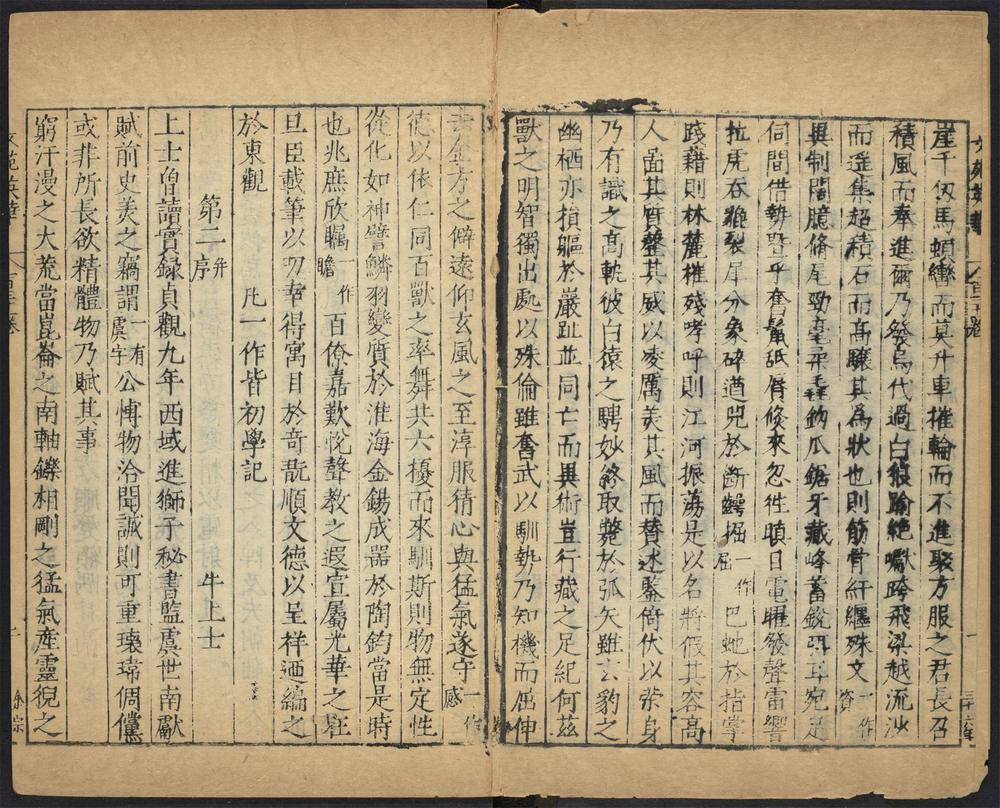 崖千仭馬頓轡而莫升車摧輪而不進聚方服之君長召
積風而奉進爾乃發烏代過白狼踰絶巘跨飛梁越流沙
而遥集超積石而高驤其為狀也則筋骨糾纒殊文一作資
異制闊臆脩尾勁毫柔毳鉤爪鋸牙藏峰蓄銳弭耳宛足
伺間借勢曁乎奮鬛舐脣倐來忽徃瞋目電曜發聲雷響
拉虎吞貔裂犀分象碎遒兕於斷齶掘一作屈巴虵於指掌
踐藉則林麓摧殘哮呼則江河振蕩是以名將假其容高
人啚其質聾其威以凌厲美其風而替述鑒倚伏以榮身
乃有識之高軌彼白猿之騁妙終取斃於弧矢雖玄豹之
幽栖亦損軀於巖趾並同亡而異術豈行藏之足紀何兹
獸之明智獨出處以殊倫雖奮武以馴勢乃知機而屈伸
去金方之僻遠仰玄風之至淳服猜心與猛氣遂守一作感
德以依仁同百獸之率舞共六擾而來馴斯則物無定性
從化如神譬鱗羽變質於淮海金錫成器於陶鈞當是時
也兆庶欣矚一作瞻百僚嘉歎恱聲教之遐宣屬光華之在
旦臣載筆以叨幸得寓目於奇翫順文德以呈祥迺編之
於東觀 凡一作皆初學記
第二并序 牛上士
上士曾讀實録貞觀九年西域進獅子秘書監虞世南獻
賦前史美之竊謂一有虞字公博物洽聞誠則可重瓌瑋倜儻
或非所長欲精體物乃賦其事
窮汗漫之大荒當崑崙之南軸鑠相剛之猛氣産靈猊之